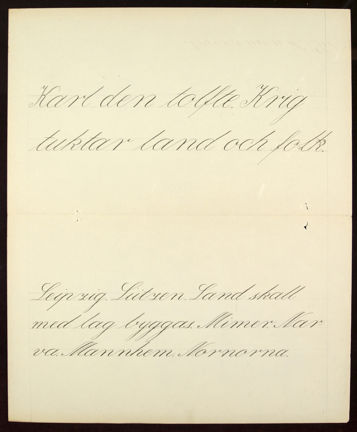 Karl den tolfte. Krig
tuktar land och folk.
Leipzig. Lützen. Land skall
med lag byggas. Mimer. Nar
va. Mannhem. Nornorna.